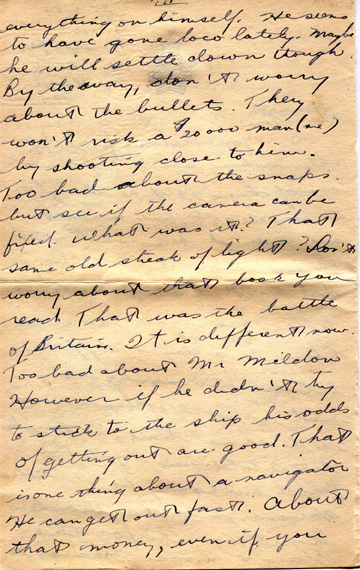 everything on himself. He seems
to have gone loco lately. Maybe
he will settle down though.
By the way, don't worry
about the bullets. They
won't risk a $20000 man (me)
by shooting close to him.
Too bad about the snaps.
but see if the camera can be
fixed. What was it? That
same old streak of light? Don't
worry about that book you
read. That was the battle
of Britain. It is different now.
Too bad about Mr Mildon
However if he didn't try
to stick to the ship his odds
of getting out are good. That
is one thing about a navigator
He can get out fast. About
that money, even if you